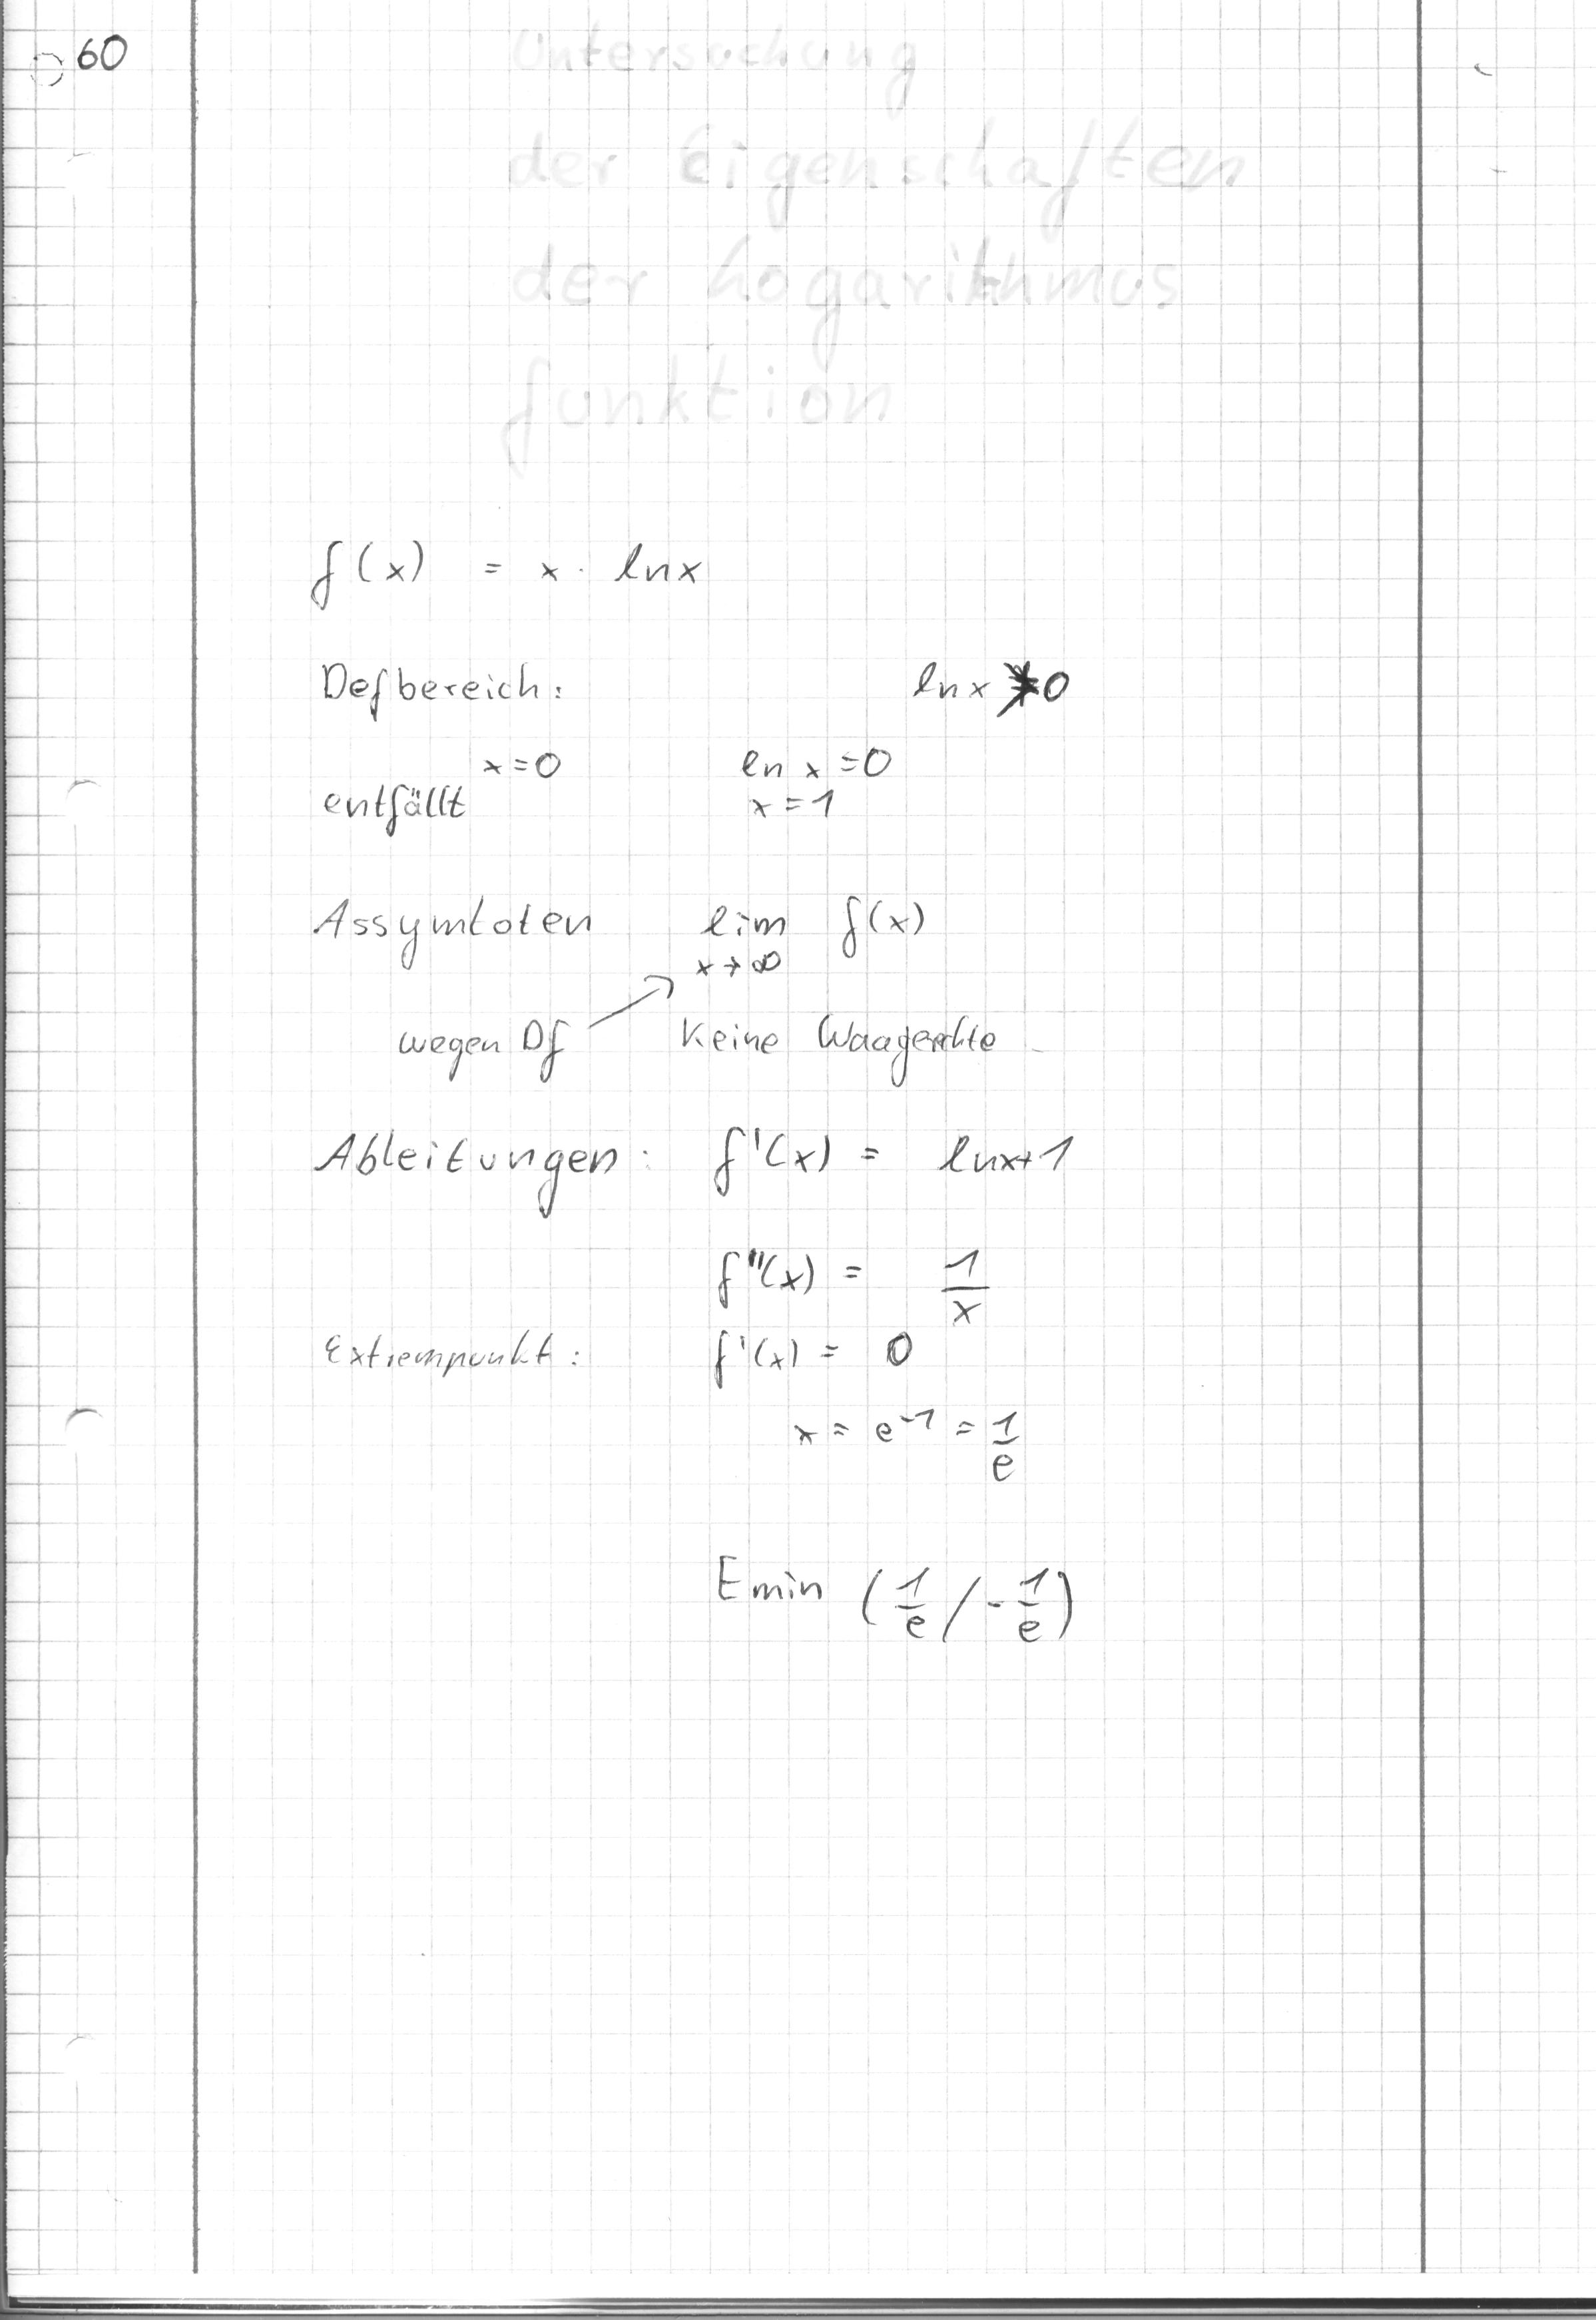 60
Untersuchung
der Eigenschaften
der Logarithmus
funktion
f(x) = x · lnx
Defbereich: lnx ≠ 0
x=0 ln x = 0
entfällt x = 1
Assymtoten lim f(x)
x→∞
wegen Df Keine Waagerechte
Ableitungen: f'(x) = lnx+1
f''(x) = 1/x
Extrempunkt: f'(x) = 0
x = e⁻¹ = 1/e
Emin (1/e / -1/e)